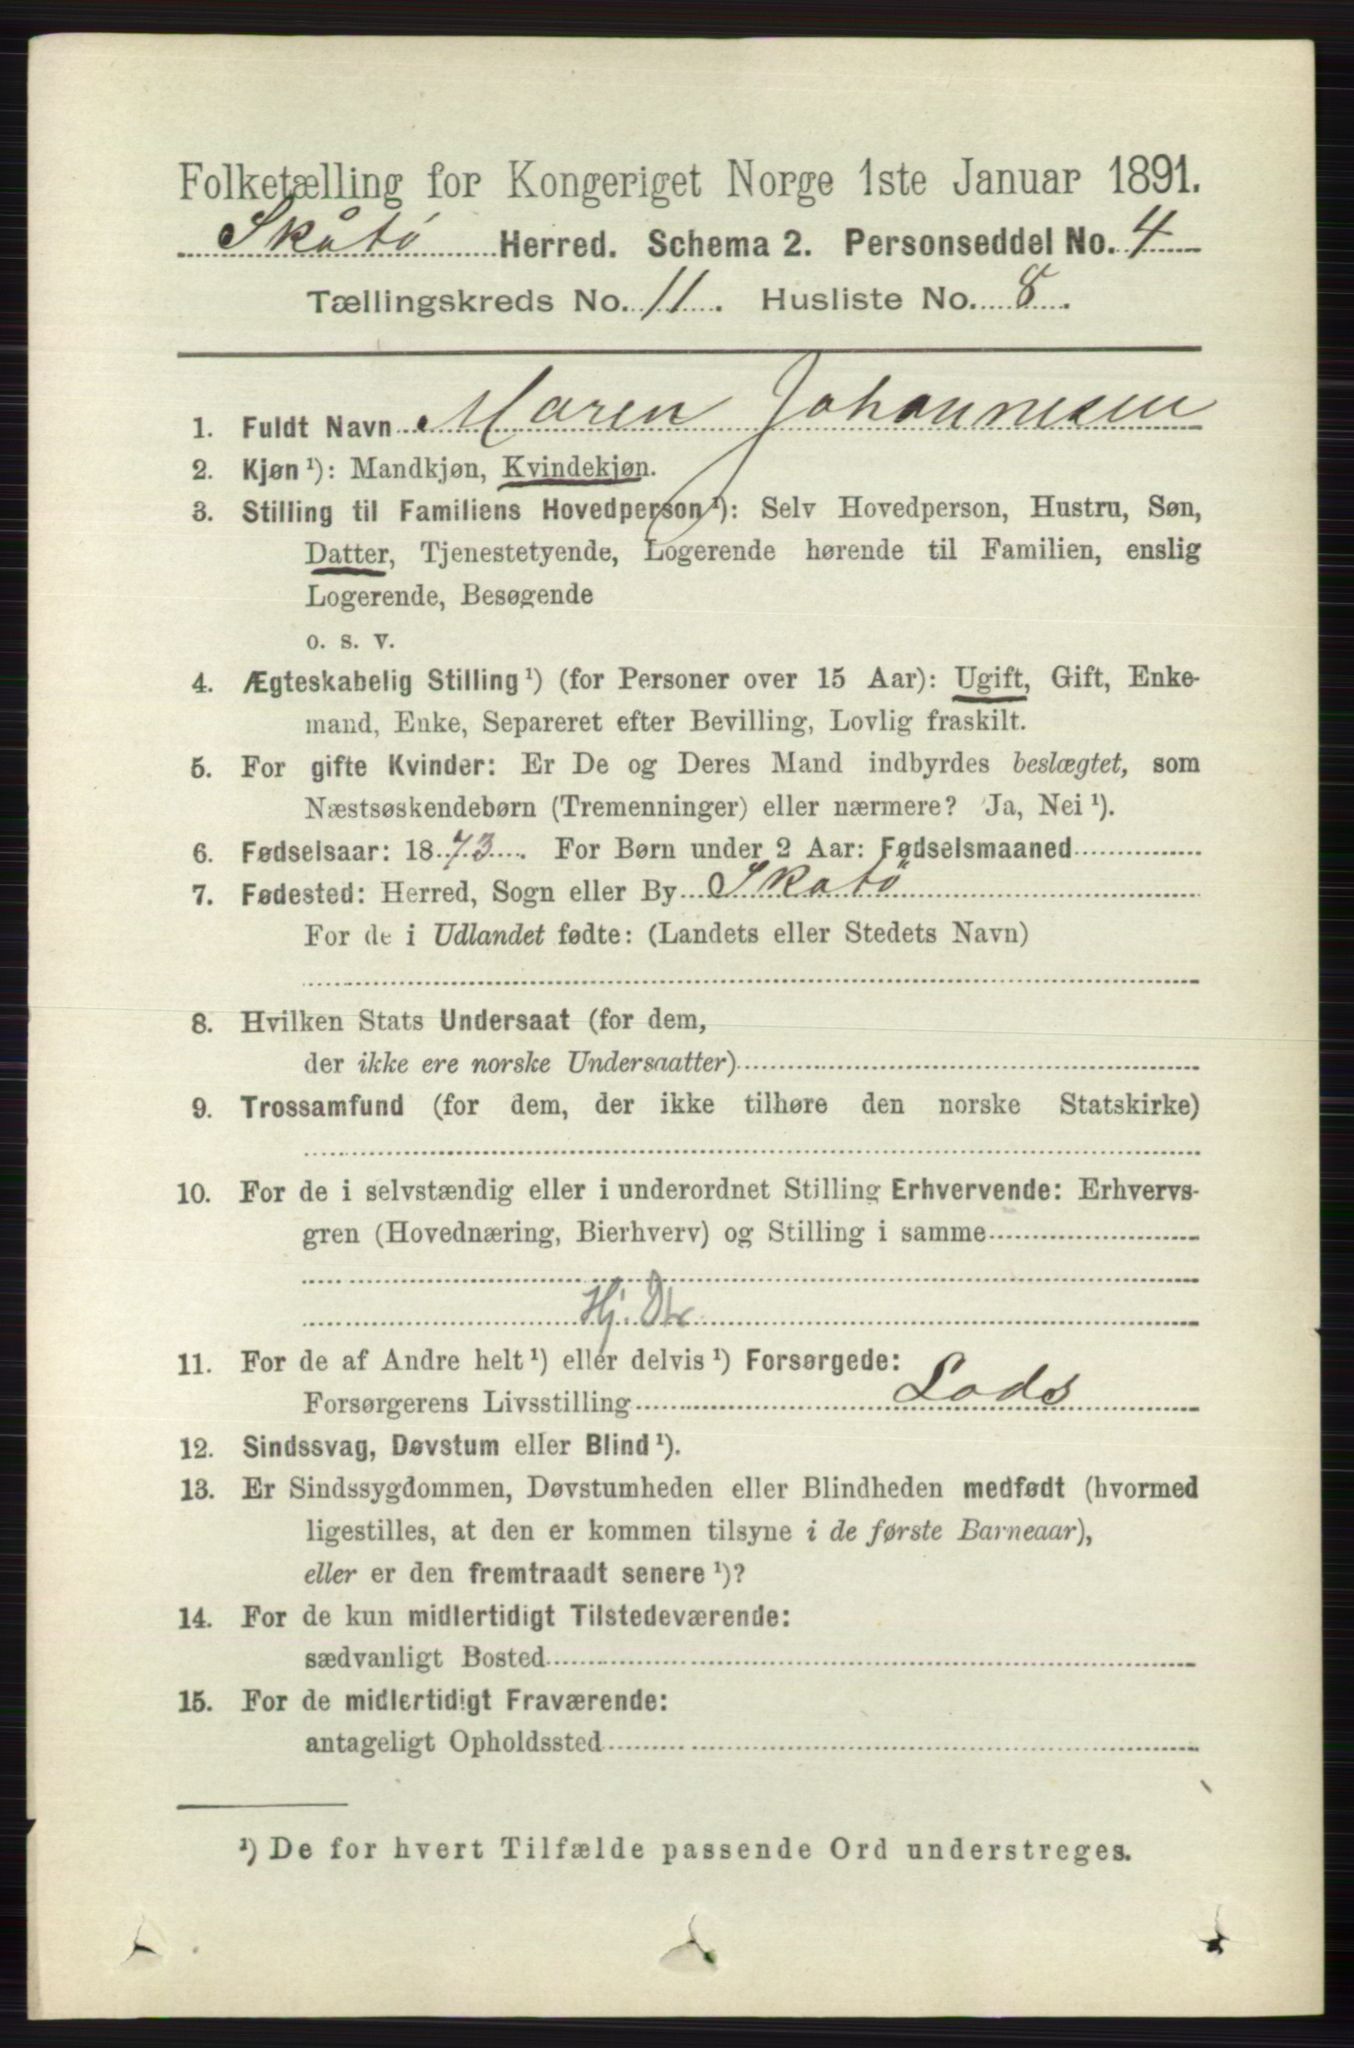 Folketælling for Kongeriget Norge 1ste Januar 1891.
Skåtø Herred. Schema 2. Personseddel No. 4
Tællingskreds No. 11. Husliste No. 8.
1. Fuldt Navn Maren Johannesen
2. Kjøn ¹): Mandkjøn, Kvindekjøn.
3. Stilling til Familiens Hovedperson ¹): Selv Hovedperson, Hustru, Søn,
Datter, Tjenestetyende, Logerende hørende til Familien, enslig
Logerende, Besøgende
o. s. v.
4. Ægteskabelig Stilling ¹) (for Personer over 15 Aar): Ugift, Gift, Enke-
mand, Enke, Separeret efter Bevilling, Lovlig fraskilt.
5. For gifte Kvinder: Er De og Deres Mand indbyrdes beslægtet, som
Næstsøskendebørn (Tremenninger) eller nærmere? Ja, Nei ¹).
6. Fødselsaar: 1873. For Børn under 2 Aar: Fødselsmaaned
7. Fødested: Herred, Sogn eller By Skatö
For de i Udlandet fødte: (Landets eller Stedets Navn)
8. Hvilken Stats Undersaat (for dem,
der ikke ere norske Undersaatter)
9. Trossamfund (for dem, der ikke tilhøre den norske Statskirke)
10. For de i selvstændig eller i underordnet Stilling Erhvervende: Erhvervs-
gren (Hovednæring, Bierhverv) og Stilling i samme
Hj. Dtr
11. For de af Andre helt ¹) eller delvis ¹) Forsørgede:
Forsørgerens Livsstilling Lods
12. Sindssvag, Døvstum eller Blind ¹).
13. Er Sindssygdommen, Døvstumheden eller Blindheden medfødt (hvormed
ligestilles, at den er kommen tilsyne i de første Barneaar),
eller er den fremtraadt senere ¹)?
14. For de kun midlertidigt Tilstedeværende:
sædvanligt Bosted
15. For de midlertidigt Fraværende:
antageligt Opholdssted
¹) De for hvert Tilfælde passende Ord understreges.